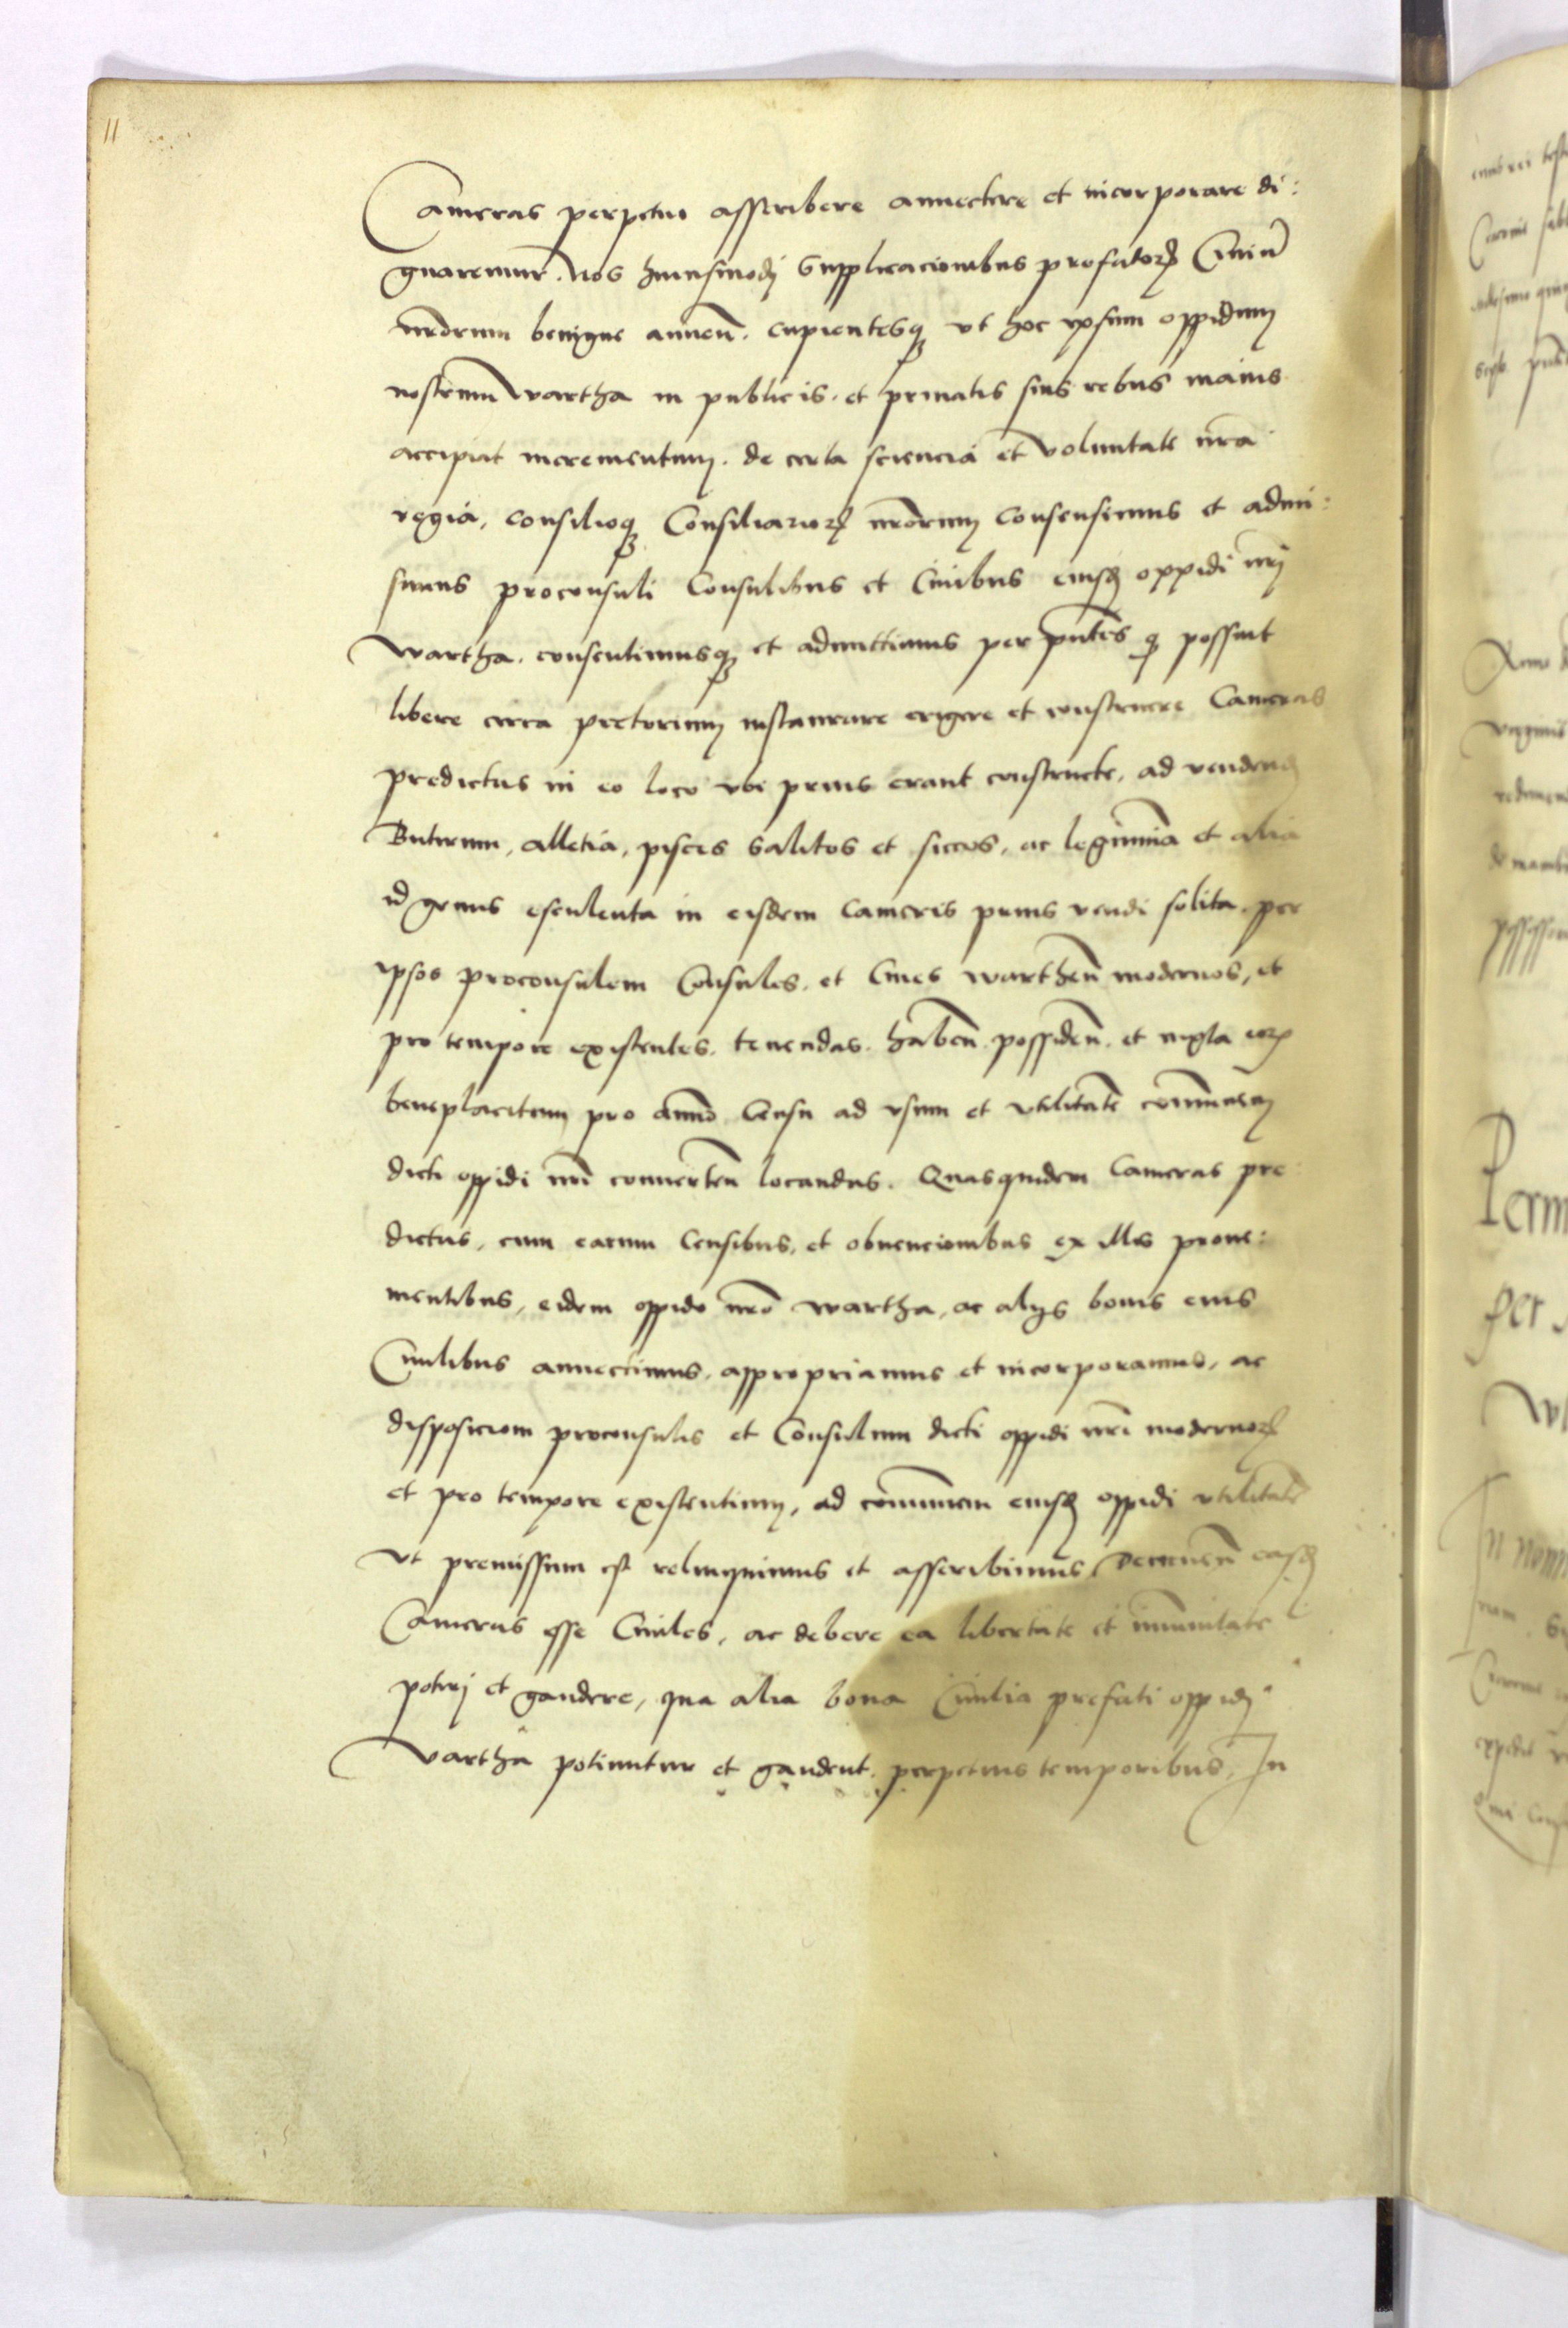 11
Cameras perpetuo asscribere annectere et incorporare di:
gnaremur. Nos huiusmodj Supplicacionibus prefatorꝝ Ciuiũ
nrõrum benigne annuen̄. cupientesqꝫ vt hoc ipsum oppidum
nostrum Wartha in publicis. et priuatis suis rebus maius
accipiat incrementum. de certa sciencia et voluntate nr̃a
regia, consilioqꝫ Consiliariorꝝ nrõrum consensimus et admi:
simus proconsuli Consulibus et Ciuibus eiusd̄ oppidi nrj̃
Wartha. consentimusqꝫ et admittimus per pñtes qꝫ possint
libere circa pretorium instaurare erigere et construere Cameras
predictas in eo loco vbi prius erant constructe, ad vendend̄
Butirum, alletia, pisces salitos et siccos, ac legumina et alia
id genus esculenta in eisdem cameris prius vendi solita. per
ipsos proconsulem Consules. et Ciues Warthen̄ modernos, et
pro tempore existentes. tenendas. haben̄. possiden̄. et iuxta eorꝝ
beneplacitum pro annuo Censu ad vsum et vtilitatē com̄unem
dicti oppidi nrĩ conuerten̄ locandas. Quasquidem Cameras pre:
dictas, cum earum Censibus, et obuencionibus ex illis proue:
nientibus, eidem oppido nrõ Wartha, ac alijs bonis eius
Ciuilibus annectimus, appropriamus et incorporamus, ac
disposicioni proconsulis et Consulum dicti oppidi nrĩ modernorꝝ
et pro tempore existentium, ad com̄unem eiusd̄ oppidi vtilitatē
vt premissum est relinquimus et asscribimus, Decernen̄ easd̄
Cameras esse Ciuiles, ac debere ea libertate et im̄unitate
potirj et gaudere, qua alia bona Ciuilia prefati oppidj
Wartha potiuntur et gaudent. perpetuis temporibus. In